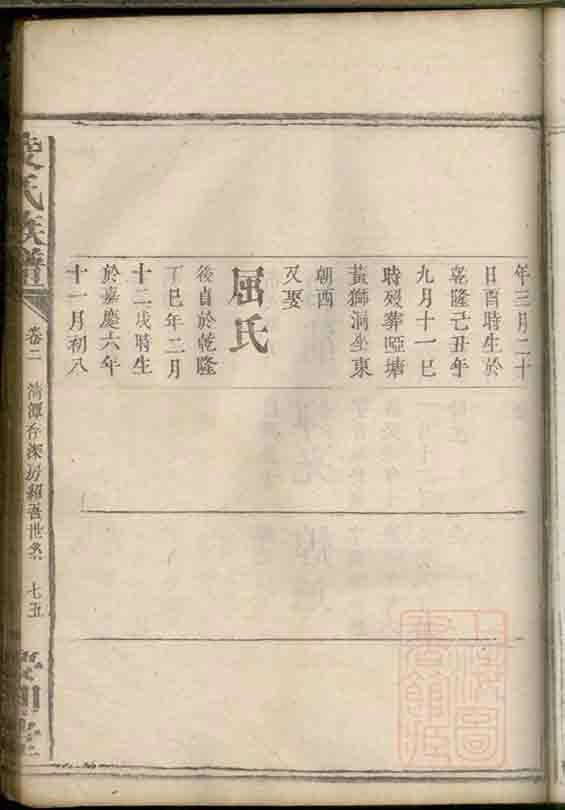 年三月二十
日酉時生於
乾隆己丑年
九月十一巳
時歿葬啞塘
黃獅洞坐東
朝西
又娶
屈氏
後自於乾隆
丁巳年二月
十二戌時生
於嘉慶六年
十一月初八
氏族譜
卷二
清潭存深房紹吾世系
七五